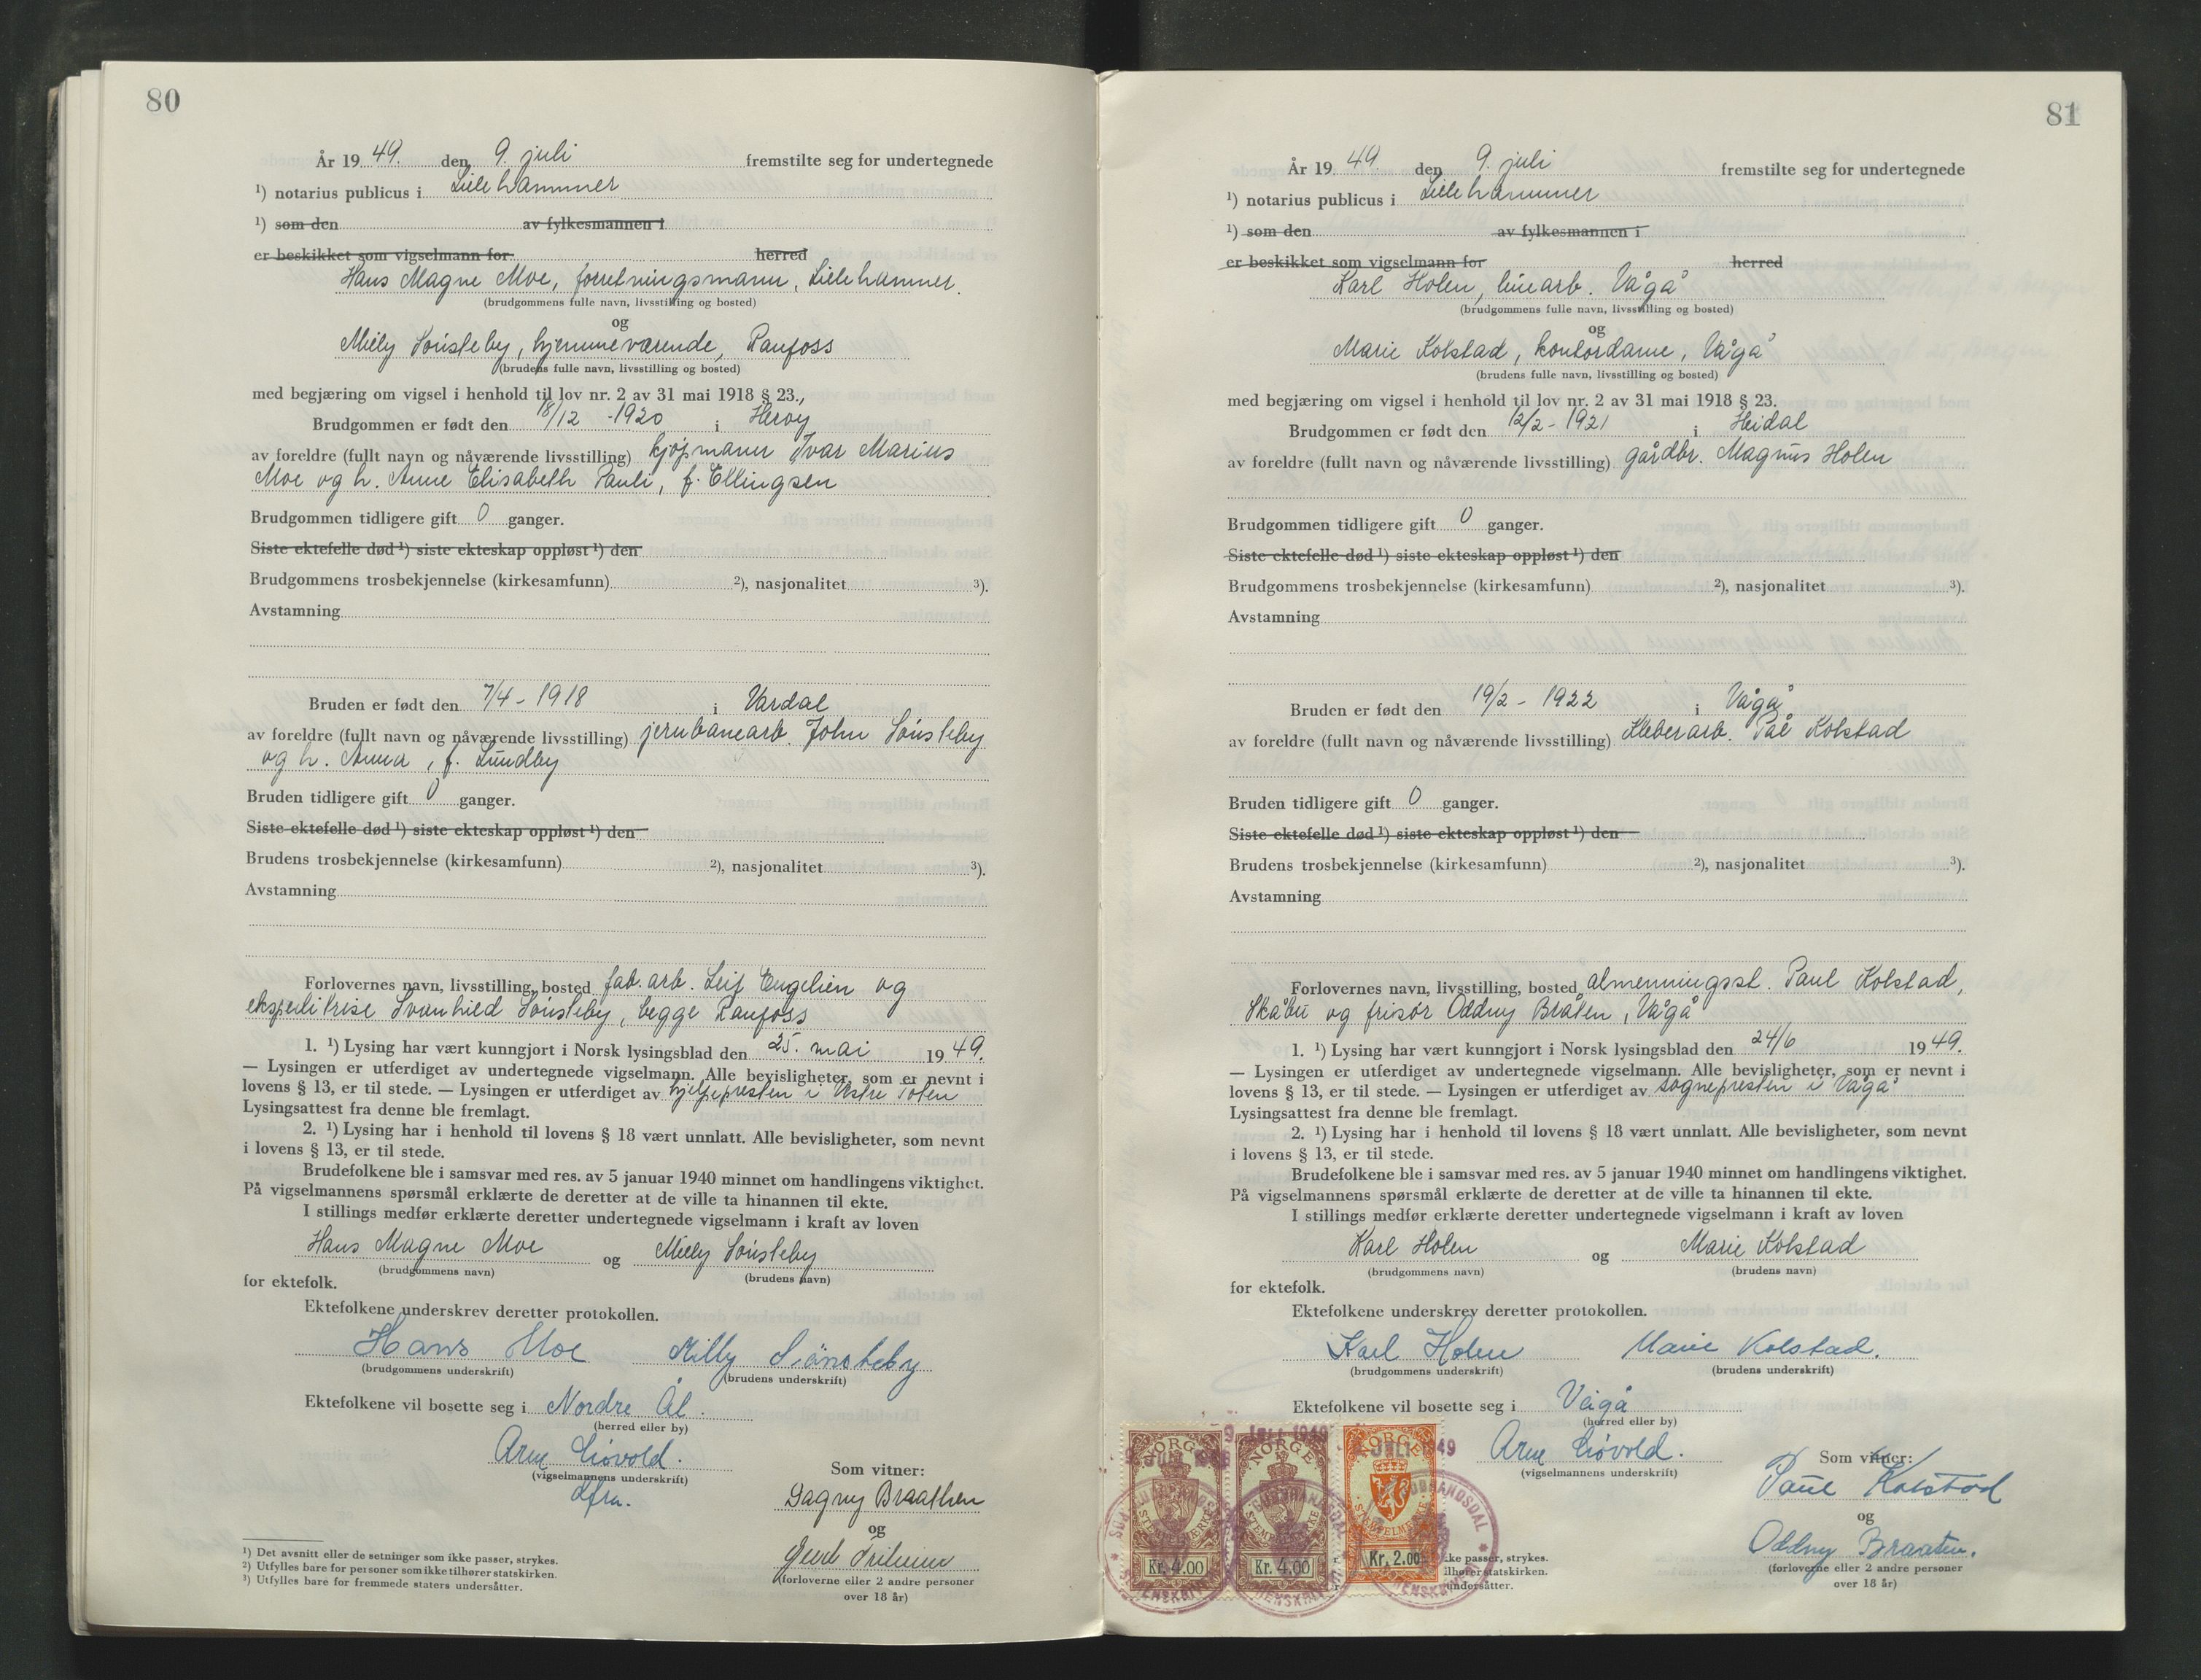 80
År 19 49. den 9. juli fremstilte seg for undertegnede
¹) notarius publicus i Lillehammer
¹) som den av fylkesmannen i
er beskikket som vigselmann for herred
Hans Magne Moe, forretningsmann, Lillehammer.
(brudgommens fulle navn, livsstilling og bosted)
og
Milly Sønsteby, hjemmeværende, Raufoss
(brudens fulle navn, livsstilling og bosted)
med begjæring om vigsel i henhold til lov nr. 2 av 31 mai 1918 § 23.,
Brudgommen er født den 18/12 -1920 i Herøy
av foreldre (fullt navn og nåværende livsstilling) kjøpmann Ivar Marius
Moe og h. Anne Elisabeth Pauli, f. Ellingsen
Brudgommen tidligere gift 0 ganger.
Siste ektefelle død ¹) siste ekteskap oppløst ¹) den
Brudgommens trosbekjennelse (kirkesamfunn) ²), nasjonalitet ³).
Avstamning
Bruden er født den 7/4 - 1918 i Vardal
av foreldre (fullt navn og nåværende livsstilling) jernbanearb. John Sønsteby
og h. Anna, f. Lundby
Bruden tidligere gift 0 ganger.
Siste ektefelle død ¹) siste ekteskap oppløst ¹) den
Brudens trosbekjennelse (kirkesamfunn) ²), nasjonalitet ³).
Avstamning
Forlovernes navn, livsstilling, bosted fab.arb. Leif Engelien og
ekspeditrise Svanhild Sønsteby, begge Raufoss
1. ¹) Lysing har vært kunngjort i Norsk lysingsblad den 25. mai 19 49.
— Lysingen er utferdiget av undertegnede vigselmann. Alle bevisligheter, som er nevnt i
lovens § 13, er til stede. — Lysingen er utferdiget av hjelpepresten i Vestre Toten
Lysingsattest fra denne ble fremlagt.
2. ¹) Lysing har i henhold til lovens § 18 vært unnlatt. Alle bevisligheter, som nevnt
i lovens § 13, er til stede.
Brudefolkene ble i samsvar med res. av 5 januar 1940 minnet om handlingens viktighet.
På vigselmannens spørsmål erklærte de deretter at de ville ta hinannen til ekte.
I stillings medfør erklærte deretter undertegnede vigselmann i kraft av loven
Hans Magne Moe og Milly Sønsteby
(brudgommens navn) (brudens navn)
for ektefolk.
Ektefolkene underskrev deretter protokollen.
Hans Moe Milly Sønsteby
(brudgommens underskrift) (brudens underskrift)
Ektefolkene vil bosette seg i Nordre Ål.
(herred eller by)
Arne Løvold.
(vigselmannens underskrift)
dfm.
Som vitner:
Dagny Braathen
og
(forloverne eller 2 andre personer
over 18 år)
¹) Det avsnitt eller de setninger som ikke passer, strykes.
²) Utfylles bare for personer som ikke tilhører statskirken.
³) Utfylles bare for fremmede staters undersåtter.
81
År 19 49. den 9. juli fremstilte seg for undertegnede
¹) notarius publicus i Lillehammer
¹) som den av fylkesmannen i
er beskikket som vigselmann for herred
Karl Holen, linearb. Vågå
(brudgommens fulle navn, livsstilling og bosted)
og
Marie Kolstad, kontordame, Vågå
(brudens fulle navn, livsstilling og bosted)
med begjæring om vigsel i henhold til lov nr. 2 av 31 mai 1918 § 23.
Brudgommen er født den 12/2 - 1921 i Heidal
av foreldre (fullt navn og nåværende livsstilling) gårdbr. Magnus Holen
Brudgommen tidligere gift 0 ganger.
Siste ektefelle død ¹) siste ekteskap oppløst ¹) den
Brudgommens trosbekjennelse (kirkesamfunn) ²), nasjonalitet ³).
Avstamning
Bruden er født den 19/2 - 1922 i Vågå
av foreldre (fullt navn og nåværende livsstilling) Kleberarb. Pål Kolstad
Bruden tidligere gift 0 ganger.
Siste ektefelle død ¹) siste ekteskap oppløst ¹) den
Brudens trosbekjennelse (kirkesamfunn) ²), nasjonalitet ³).
Avstamning
Forlovernes navn, livsstilling, bosted almenningsst. Paul Kolstad,
Skåbu og frisør Oddny Bråten, Vågå
1. ¹) Lysing har vært kunngjort i Norsk lysingsblad den 24/6 19 49.
— Lysingen er utferdiget av undertegnede vigselmann. Alle bevisligheter, som er nevnt i
lovens § 13, er til stede. — Lysingen er utferdiget av sognepresten i Vågå
Lysingsattest fra denne ble fremlagt.
2. ¹) Lysing har i henhold til lovens § 18 vært unnlatt. Alle bevisligheter, som nevnt
i lovens § 13, er til stede.
Brudefolkene ble i samsvar med res. av 5 januar 1940 minnet om handlingens viktighet.
På vigselmannens spørsmål erklærte de deretter at de ville ta hinannen til ekte.
I stillings medfør erklærte deretter undertegnede vigselmann i kraft av loven
Karl Holen og Marie Kolstad
(brudgommens navn) (brudens navn)
for ektefolk.
Ektefolkene underskrev deretter protokollen.
Karl Holen Marie Kolstad.
(brudgommens underskrift) (brudens underskrift)
Ektefolkene vil bosette seg i Vågå
(herred eller by)
Arne Løvold.
(vigselmannens underskrift)
Som vitner:
Paul Kolstad
og
Oddny Braaten.
(forloverne eller 2 andre personer
over 18 år)
NORGE NORGE NORGE
9 JULI 1949
STEMPELMERKE
Kr. 4.00 Kr. 4.00 Kr. 2.00
ke passer, strykes.
lhører statskirken.
undersåtter.